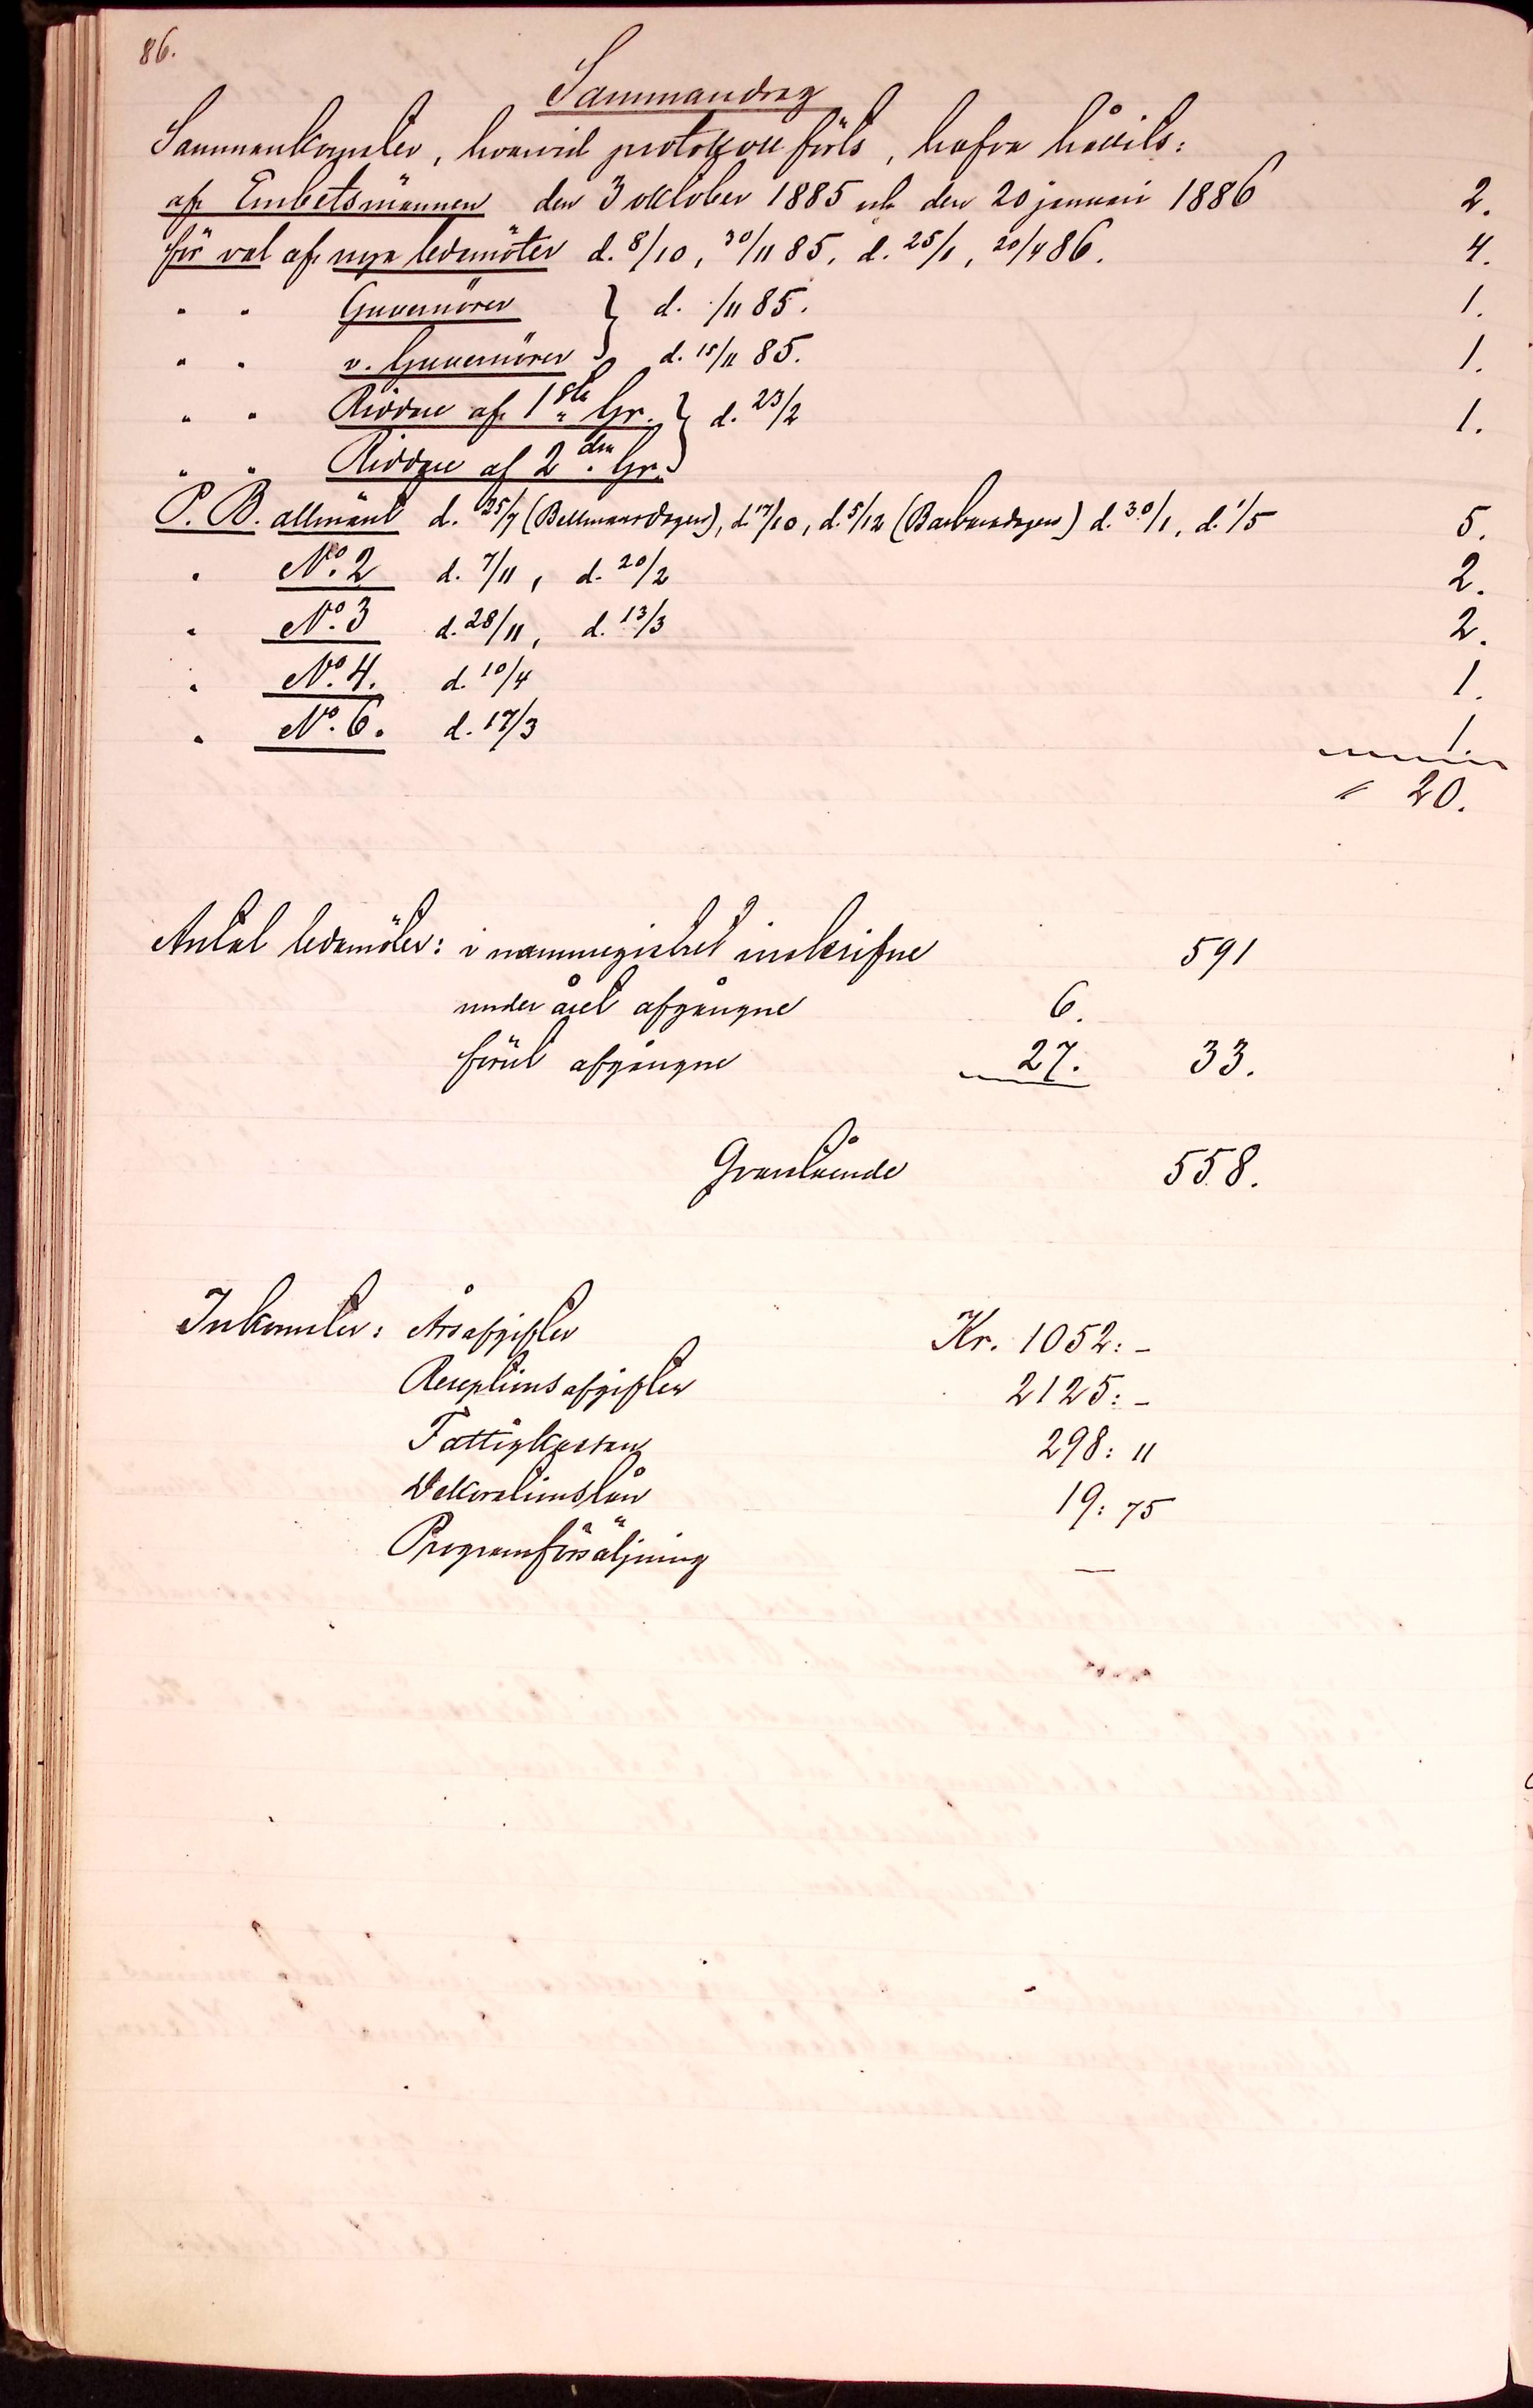 86.
Sammandrag
Sammankomster, hvarvid protokoll förts, hafva hållits:
af Embetsmännen den 3 oktober 1885 och den 20 januari 1886 2.
för val af nya ledamöter d. 8/10, 30/11 85, d. 25/1, 20/4 86. 4.
" " Guvernörer } d. /11 85. 1.
" " v. Guvernörer } d. 15/11 85. 1.
" " Riddare af 1sta Gr. } d. 23/2 1.
" " Riddare af 2dra Gr. }
P. B. allmänt d. 25/7 (Bellmansdagen), d. 17/10, d. 5/12 (Barbaradagen) d. 30/1, d. 1/5 5.
" No. 2 d. 7/11, d. 20/2 2.
" No. 3 d. 28/11, d. 13/3 2.
" No. 4. d. 10/4 1.
" No. 6. d. 17/3 1.
20.
Antal ledamöter: i namnregistret inskrifne 591
under året afgångne 6.
förut afgångne 27. 33.
Qvarstående 558.
Inkomster: Årsafgifter Kr. 1052: -
Receptionsafgifter 2125: -
Fattigkassan 298: 11
Dekorationslån 19: 75
Programförsäljning —